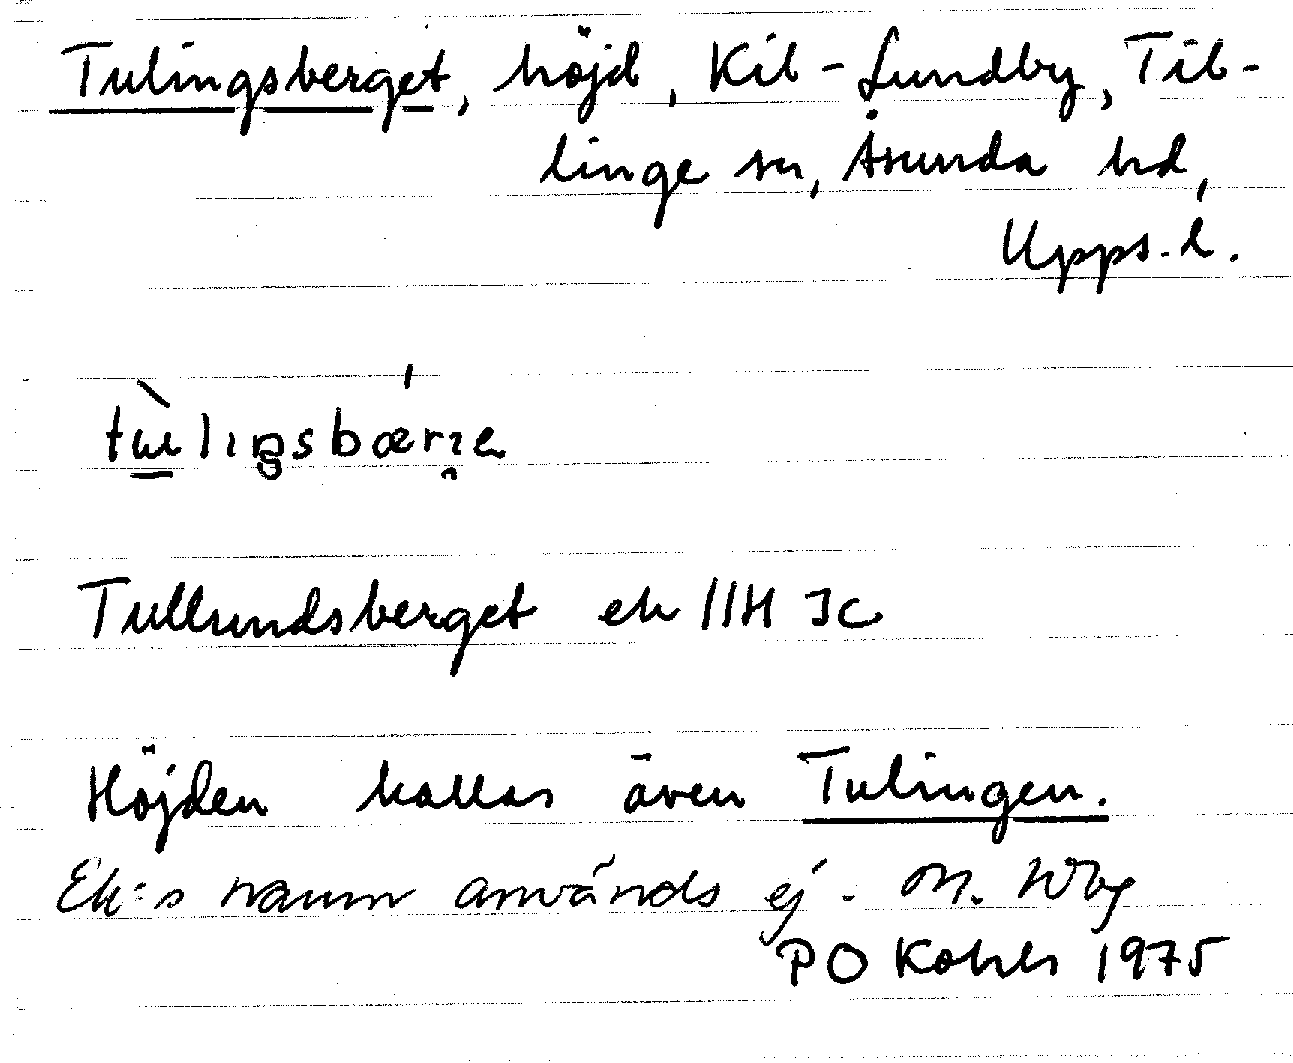 Tulingsberget, höjd, Kil-Lundby, Till-
linge sn, Åsunda hd,
Upps. l.
Tullundsberget ek 11H Ic
Höjden kallas även Tulingen.
Ek:s namn används ej. M. Wbg
1975